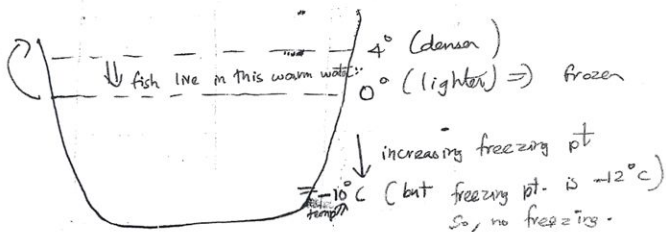 4° (denser)
fish live in this warm water
0° (lighter) => frozen
increasing freezing pt
-10°C (but freezing pt. is -12°C)
temp
So, no freezing.